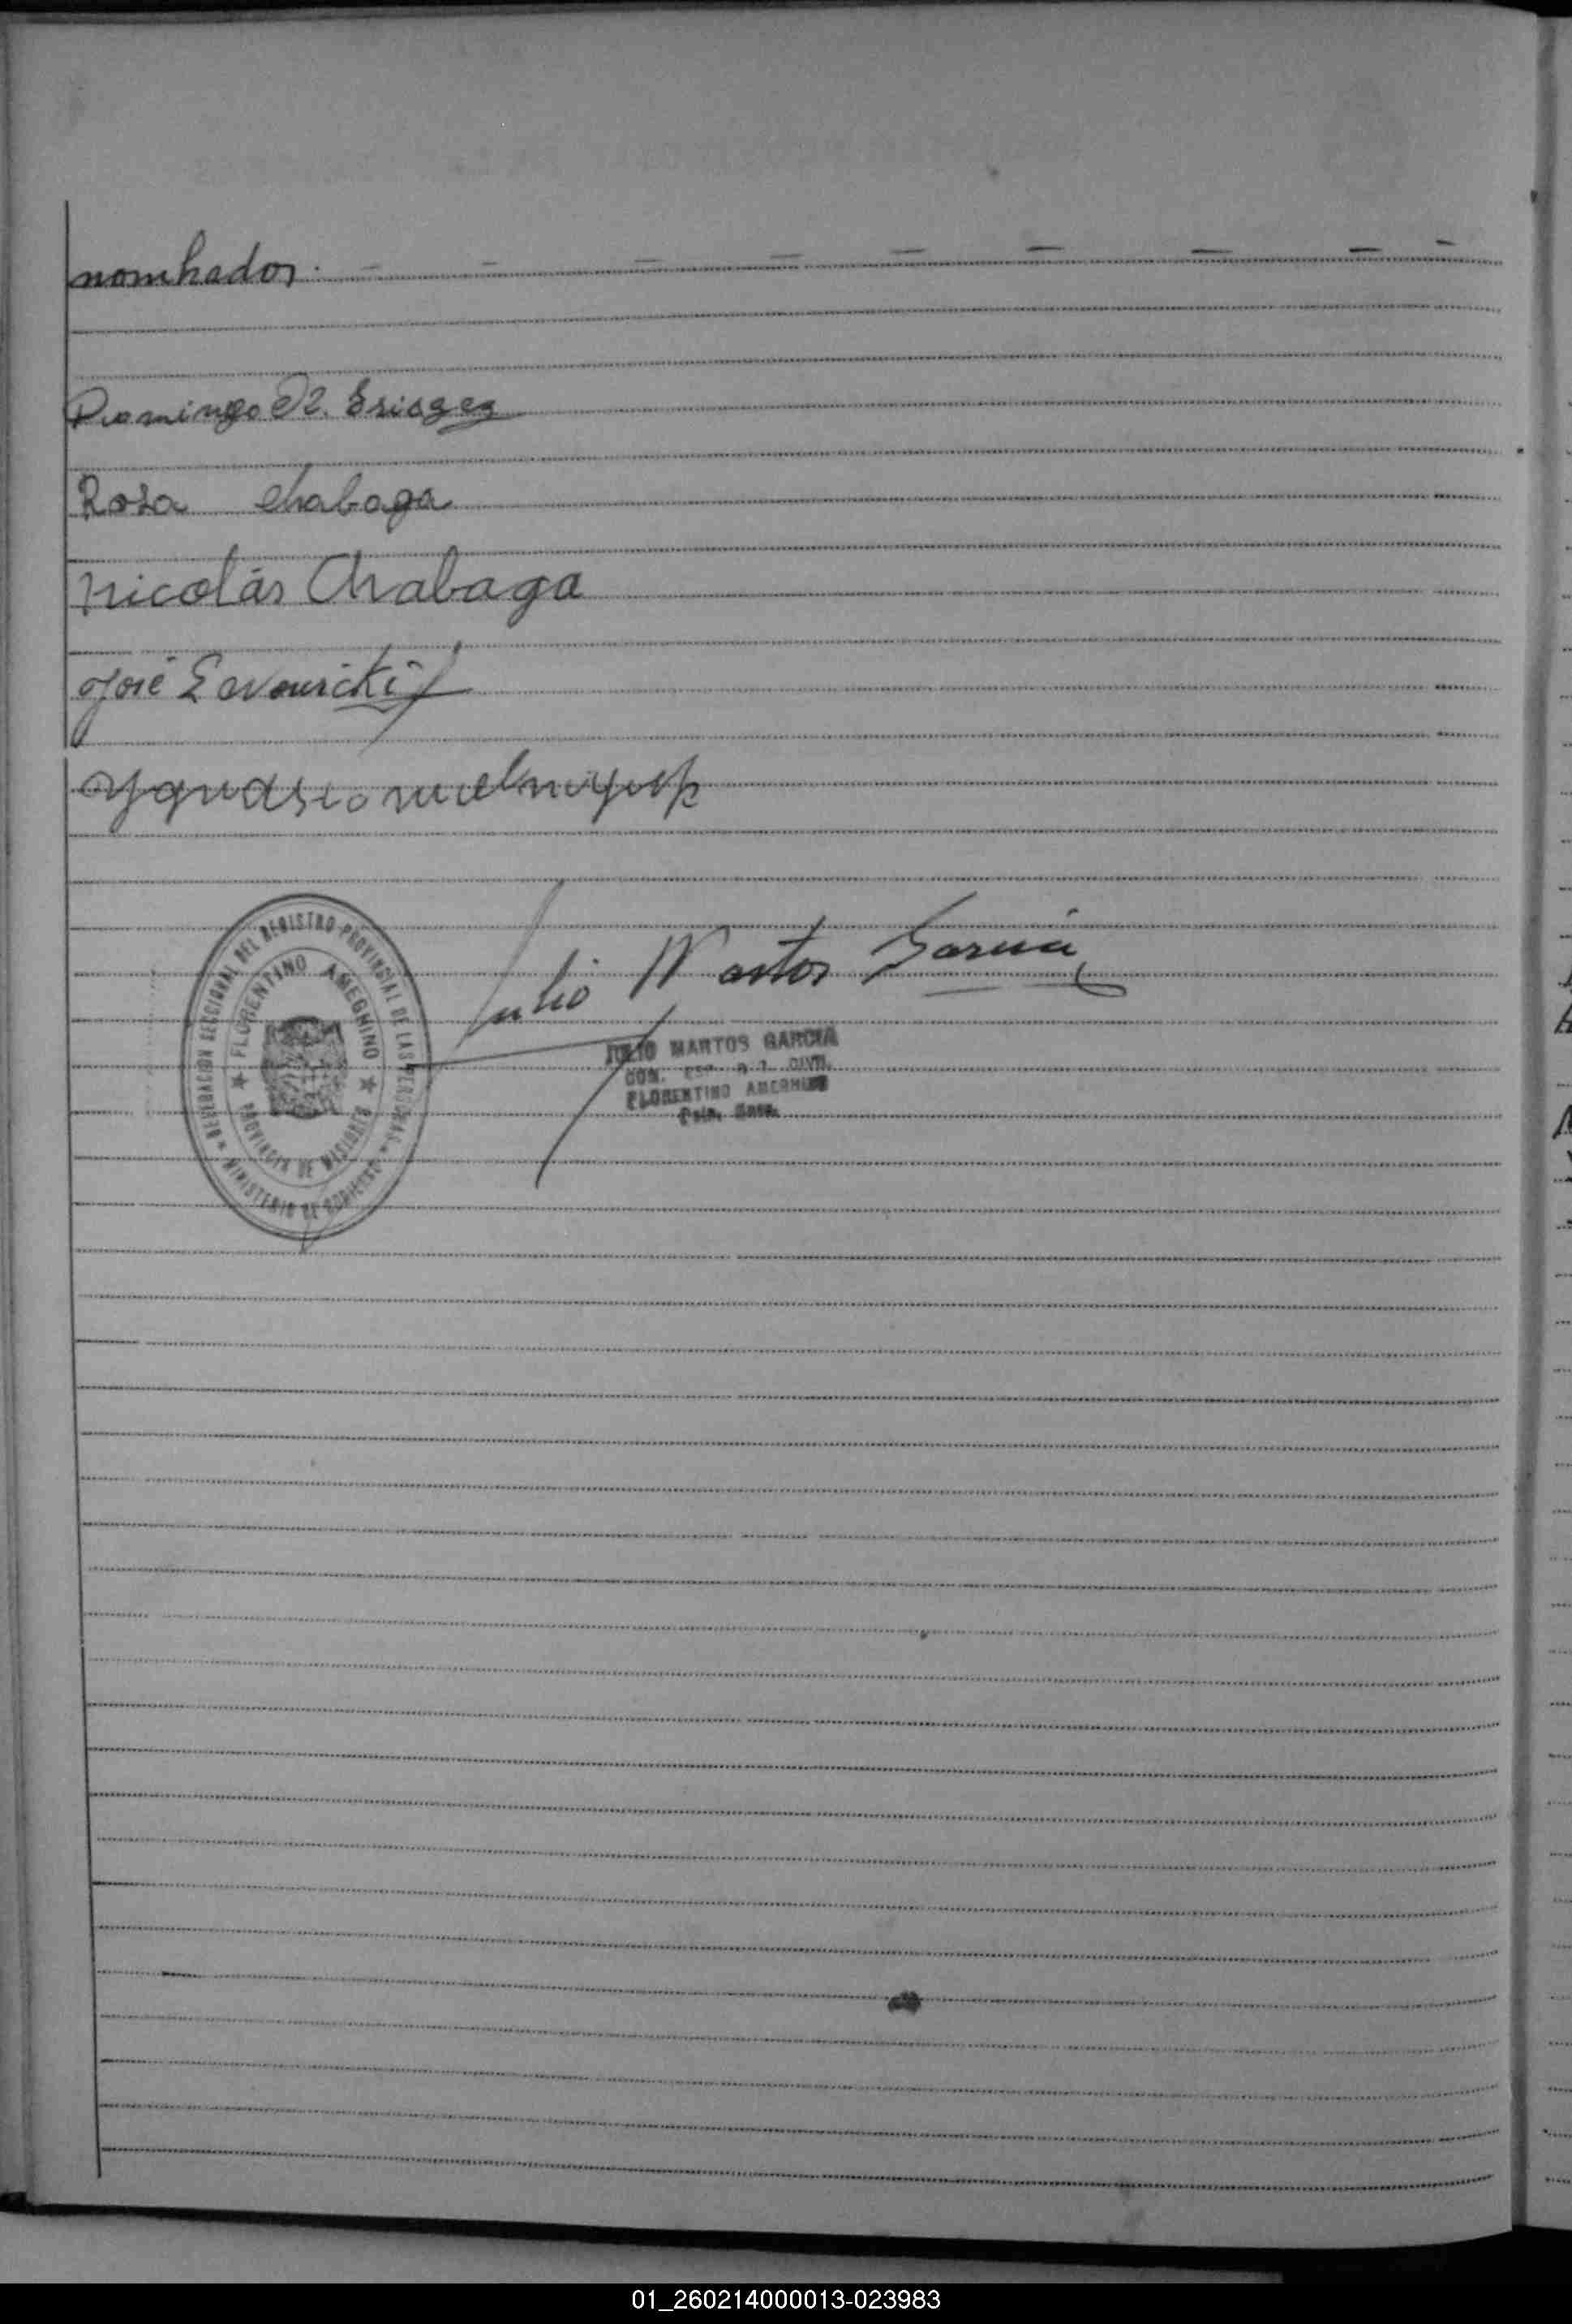 nombrados. - - - - - - - - -
Domingo
Rosa Chabaga
Nicolás Chabaga
José
Julio Martos Garcia
DELEGACION SECCIONAL DEL REGISTRO PROVINCIAL DE LAS PERSONAS
★ FLORENTINO AMEGHINO ★
PROVINCIA DE MISIONES
★ MINISTERIO DE GOBIERNO ★
JULIO MARTOS GARCIA
FLORENTINO AMEGHINO
01_260214000013-023983